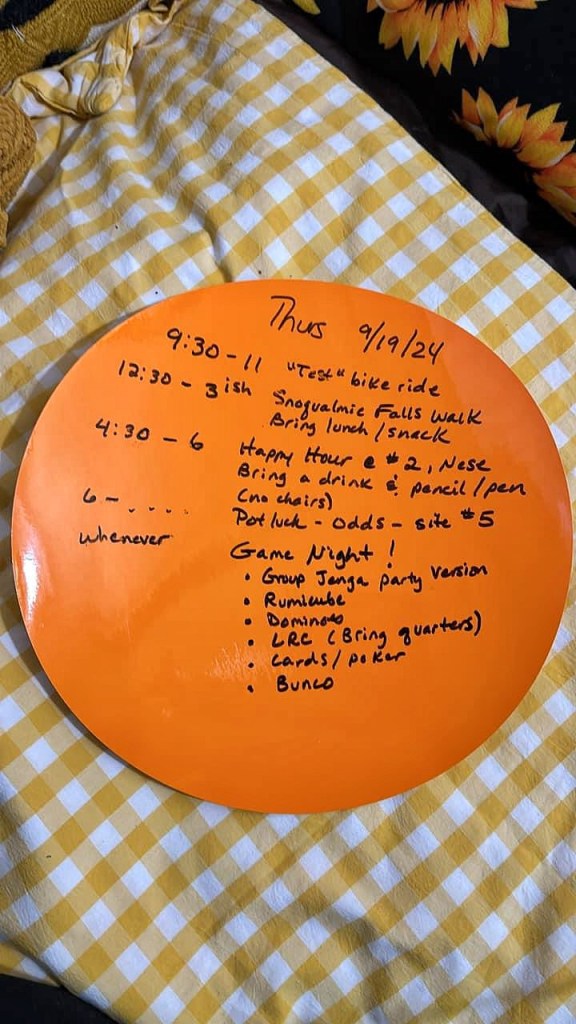 Thurs 9/19/24
9:30 - 11 "Test" bike ride
12:30 - 3ish Snoqualmie Falls Walk
Bring lunch/snack
4:30 - 6 Happy Hour @ #2, Nese
Bring a drink & pencil/pen
(no chairs)
6 - .... Potluck - odds - site #5
whenever Game Night!
• Group Jenga party version
• Rumicube
• Dominoes
• LRC (Bring quarters)
• Cards/poker
• Bunco